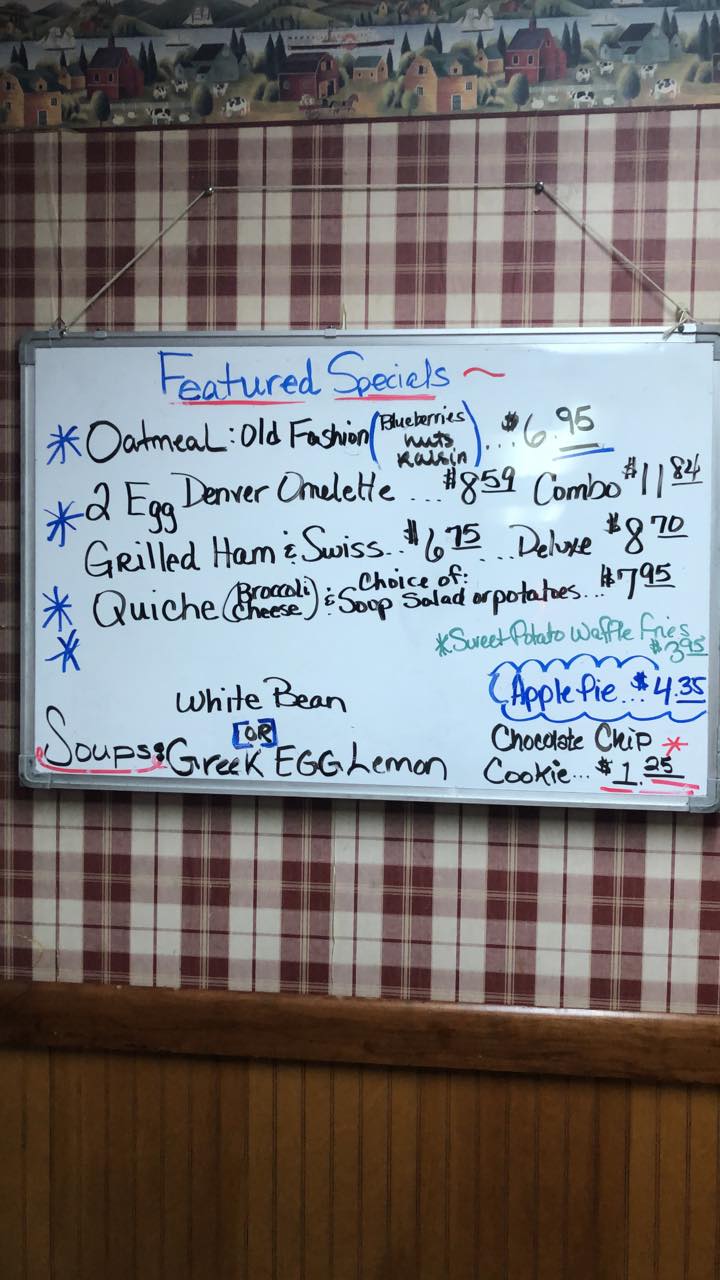 Featured Specials ~
* Oatmeal: Old Fashion (Blueberries nuts Raisin) ... $6.95
* 2 Egg Denver Omelette ... $8.59 Combo $11.84
Grilled Ham & Swiss.. $6.75 ... Deluxe $8.70
* Quiche (Broccoli Cheese) & Choice of: Soup Salad or potatoes... $7.95
*
*Sweet Potato Waffle Fries
$3.95
Apple Pie... $4.35
White Bean
OR
Soups: Greek EGG Lemon
Chocolate Chip *
Cookie... $1.25